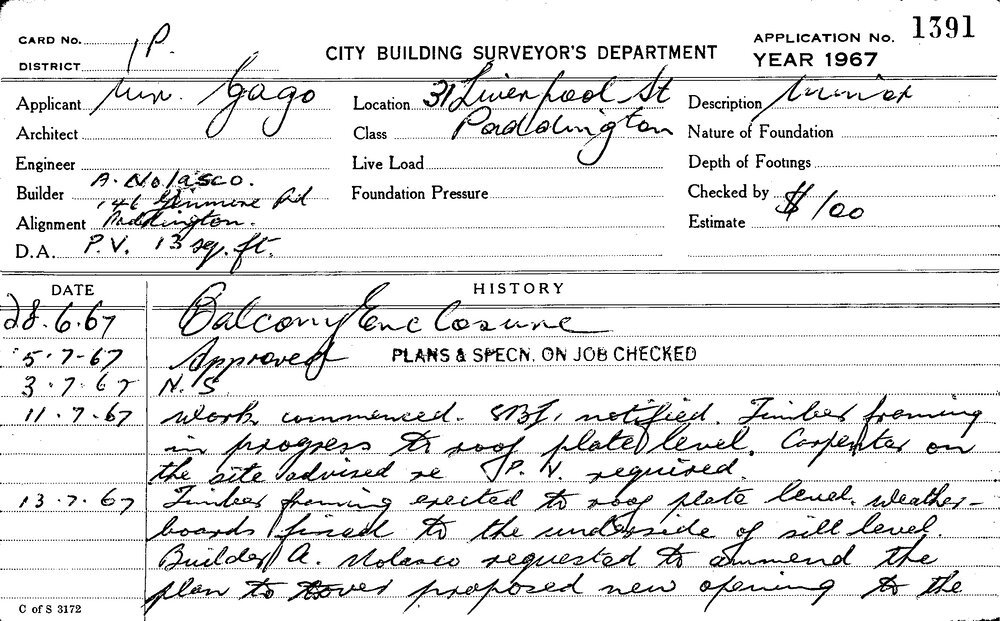 CARD No. 1P. CITY BUILDING SURVEYOR'S DEPARTMENT APPLICATION No. 1391
DISTRICT YEAR 1967
Applicant Gago Location 31 Liverpool St Description Minor
Architect Class Paddington Nature of Foundation
Engineer Live Load Depth of Footings
Builder A. Nolasco. Foundation Pressure Checked by
146 Rd
Alignment Paddington. Estimate $100
D.A. P.V. 13 sq. ft.
DATE HISTORY
28.6.67 Balcony Enclosure
5.7.67 Approved PLANS & SPECN. ON JOB CHECKED
3.7.67 N.S.
11.7.67 Work commenced. notified. Timber framing
in progress to roof plate level. Carpenter on
the site advised re P.V. required.
13.7.67 Timber framing erected to roof plate level. Weather-
boards fixed to the underside of sill level.
Builder A. Nolasco requested to ammend the
plan to cover proposed new opening to the
C of S 3172